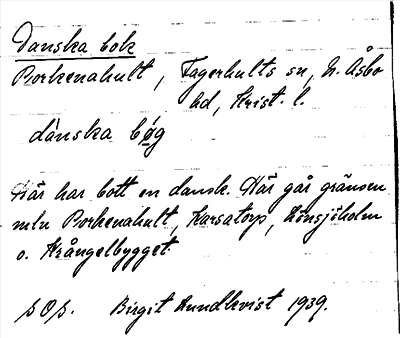 Danska bok
Porkenahult, Fagerhults sn, N. Åsbo
hd, Krist. l.
dànska bǿg
Här har bott en dansk. Här går gränsen
mln Porkenahult, Karsatorp, Lönsjöholm
o. Krångelbygget.
SOS. Birgit Lundkvist 1939.